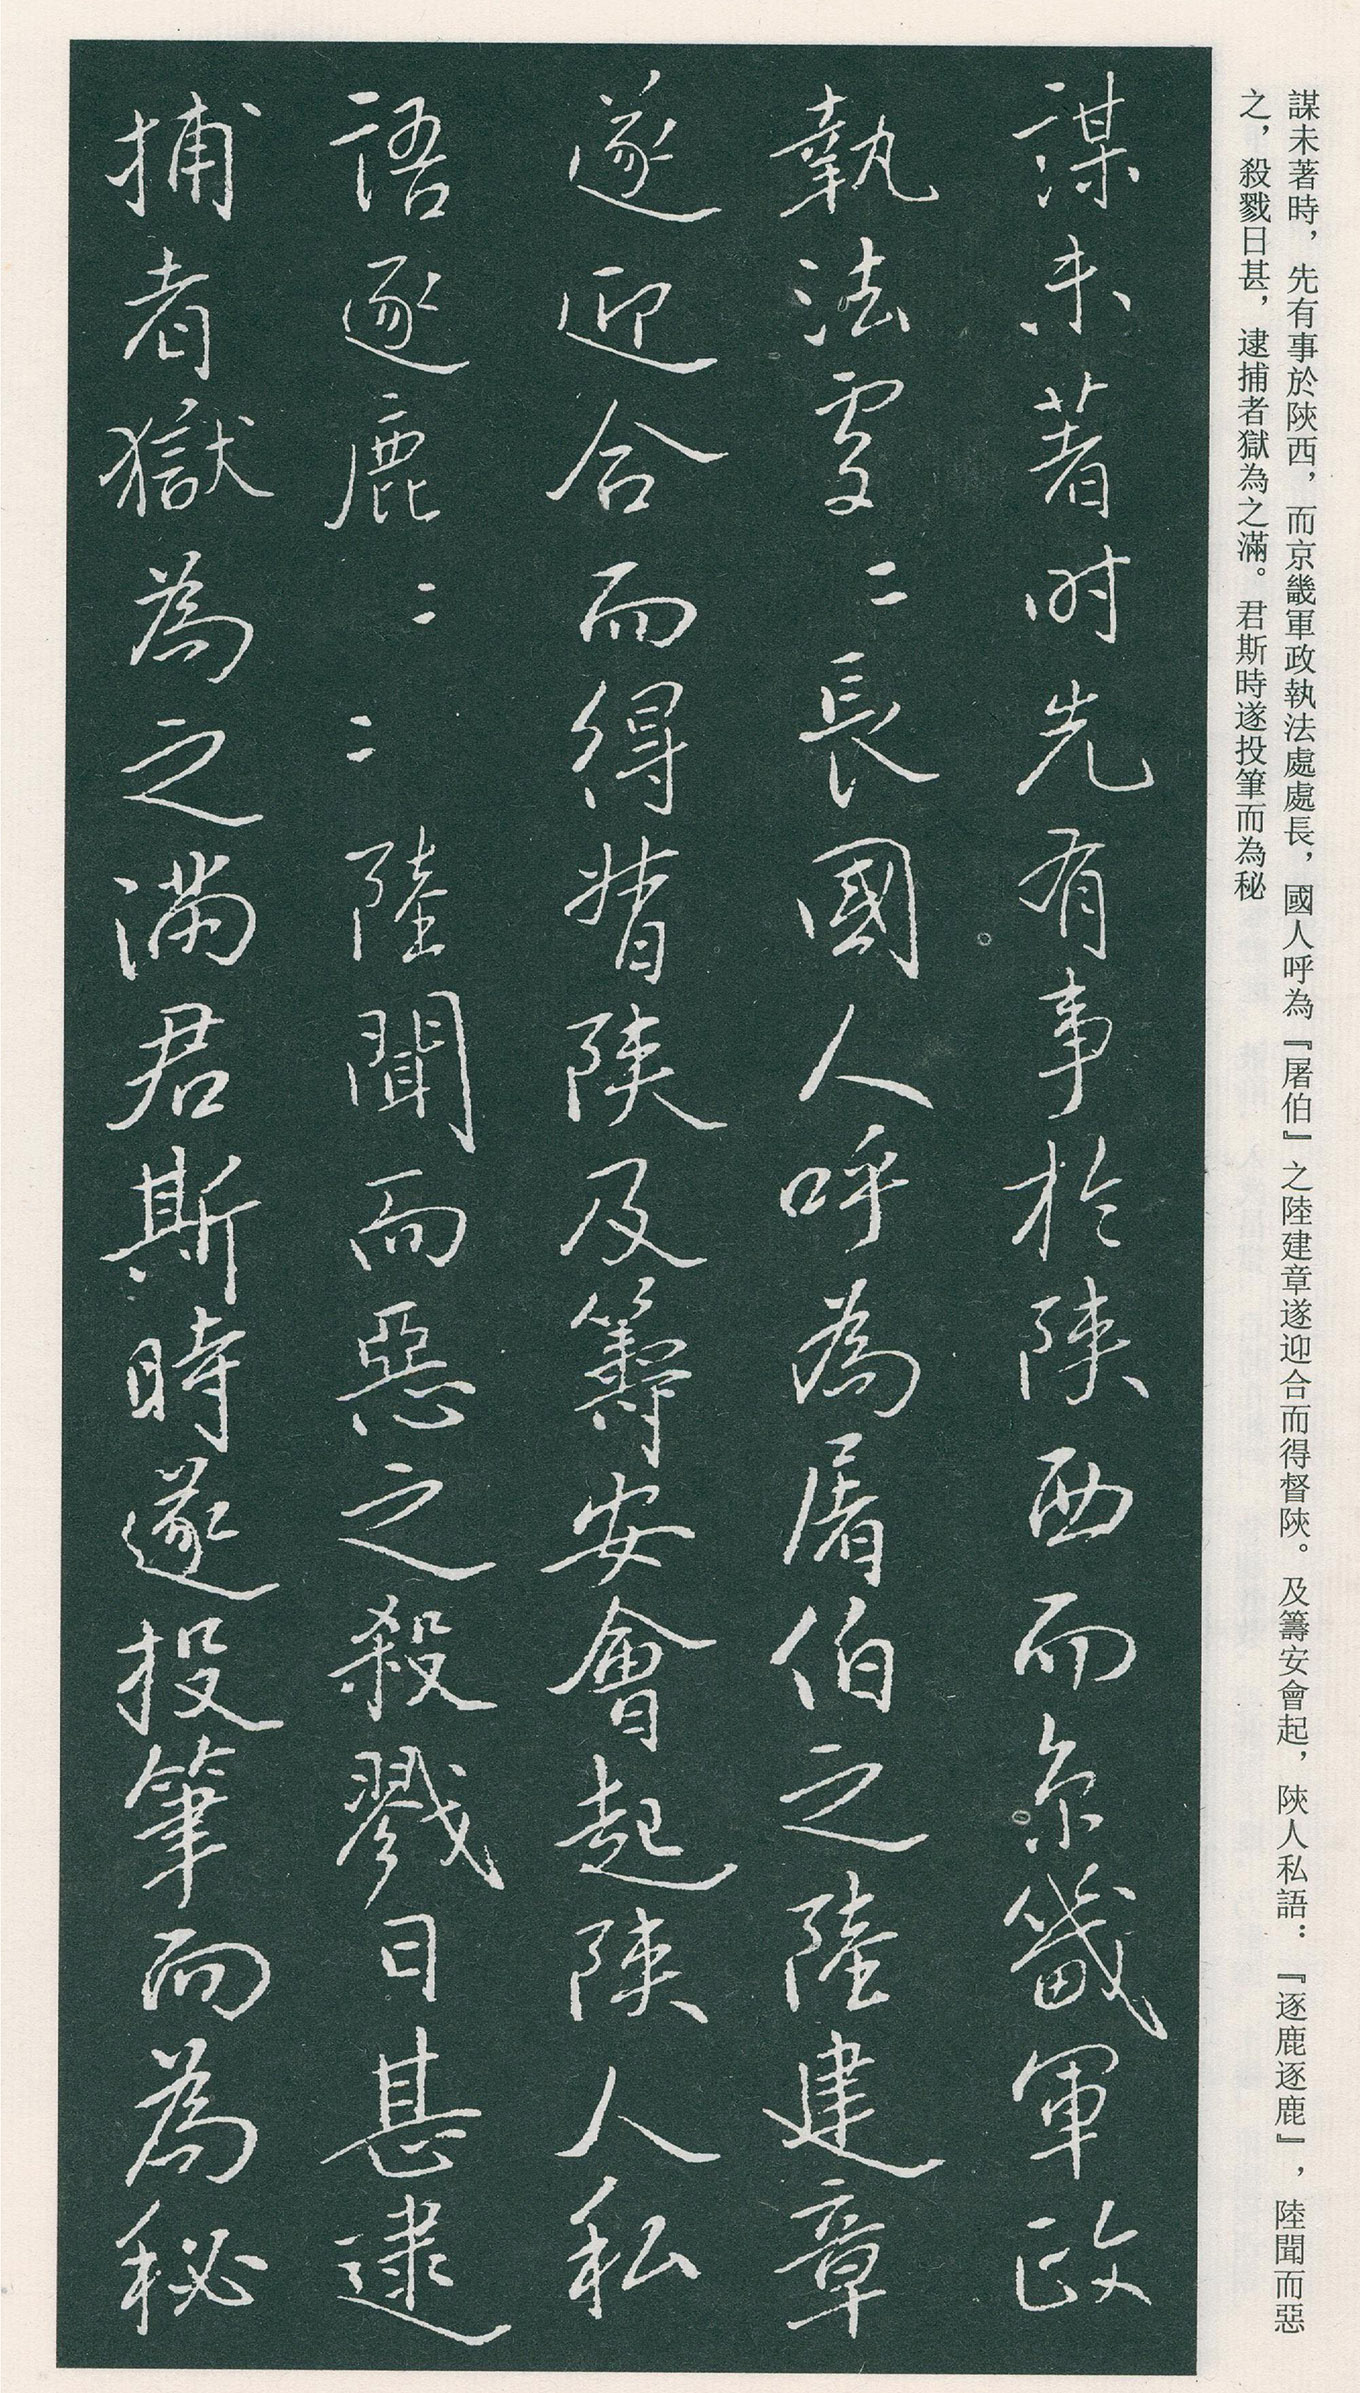 謀未著時，先有事於陝西，而京畿軍政執法處處長，國人呼為『屠伯』之陸建章遂迎合而得督陝。及籌安會起，陝人私語：『逐鹿逐鹿』，陸聞而惡
之，殺戮日甚，逮捕者獄為之滿。君斯時遂投筆而為秘
謀未著時先有事於陝西而京畿軍政
執法處〻長國人呼為屠伯之陸建章
遂迎合而得督陝及籌安會起陝人私
語逐鹿〻〻陸聞而惡之殺戮日甚逮
捕者獄為之滿君斯時遂投筆而為秘